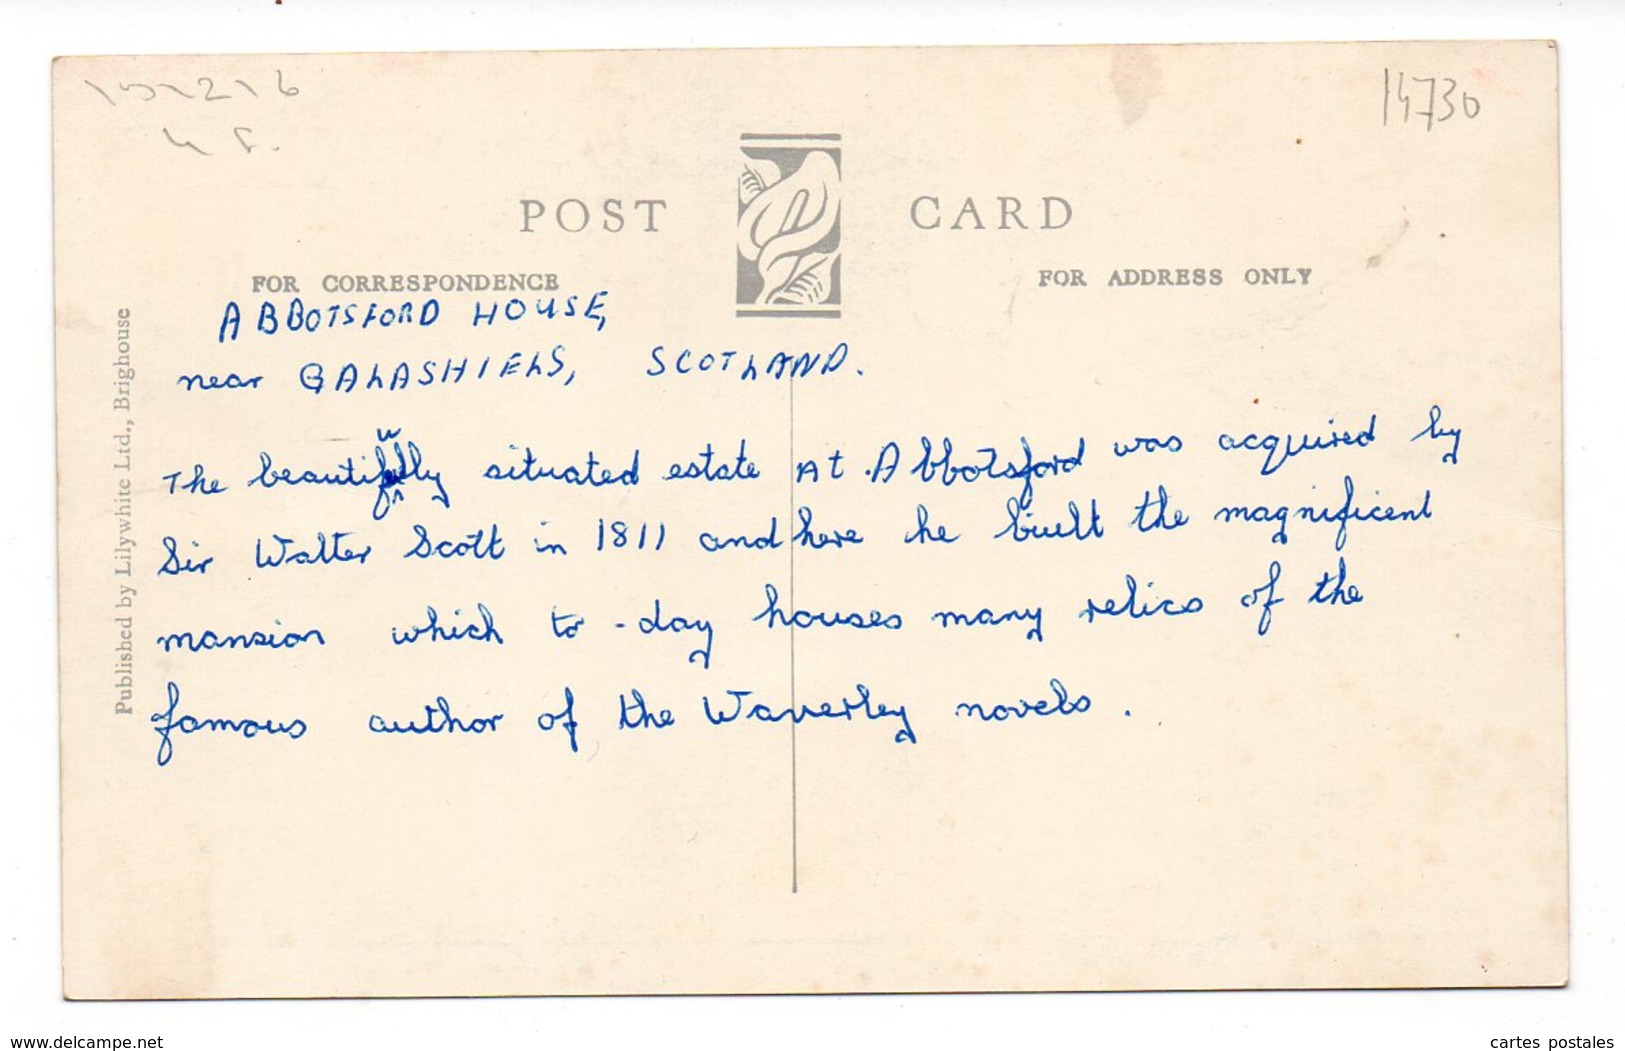 14730
POST CARD
FOR CORRESPONDENCE
FOR ADDRESS ONLY
ABBOTSFORD HOUSE,
near GALASHIELS, SCOTLAND.
The beautifully situated estate At Abbotsford was acquired by
Sir Walter Scott in 1811 and here he built the magnificent
mansion which to-day houses many relics of the
famous author of the Waverley novels.
Published by Lilywhite Ltd., Brighouse
www.delcampe.net
cartes postales